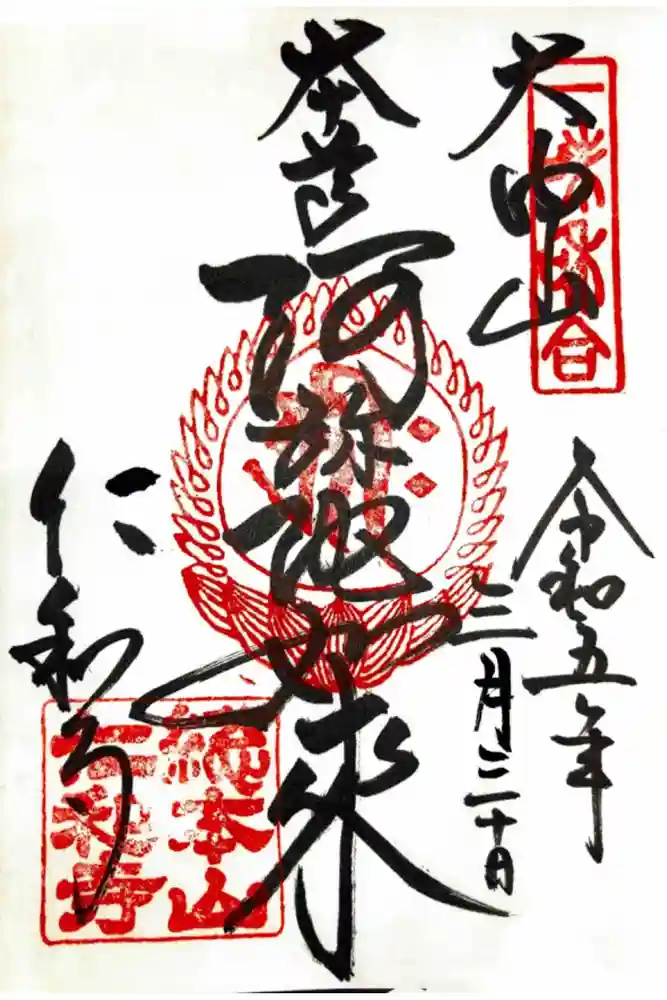 大内山
令和五年
三月三十日
本尊
阿弥陀如來
仁和寺
總本山
仁和寺